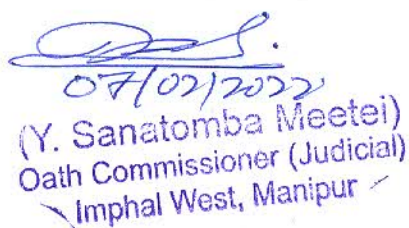 07/02/2022
(Y. Sanatomba Meetei)
Oath Commissioner (Judicial)
Imphal West, Manipur